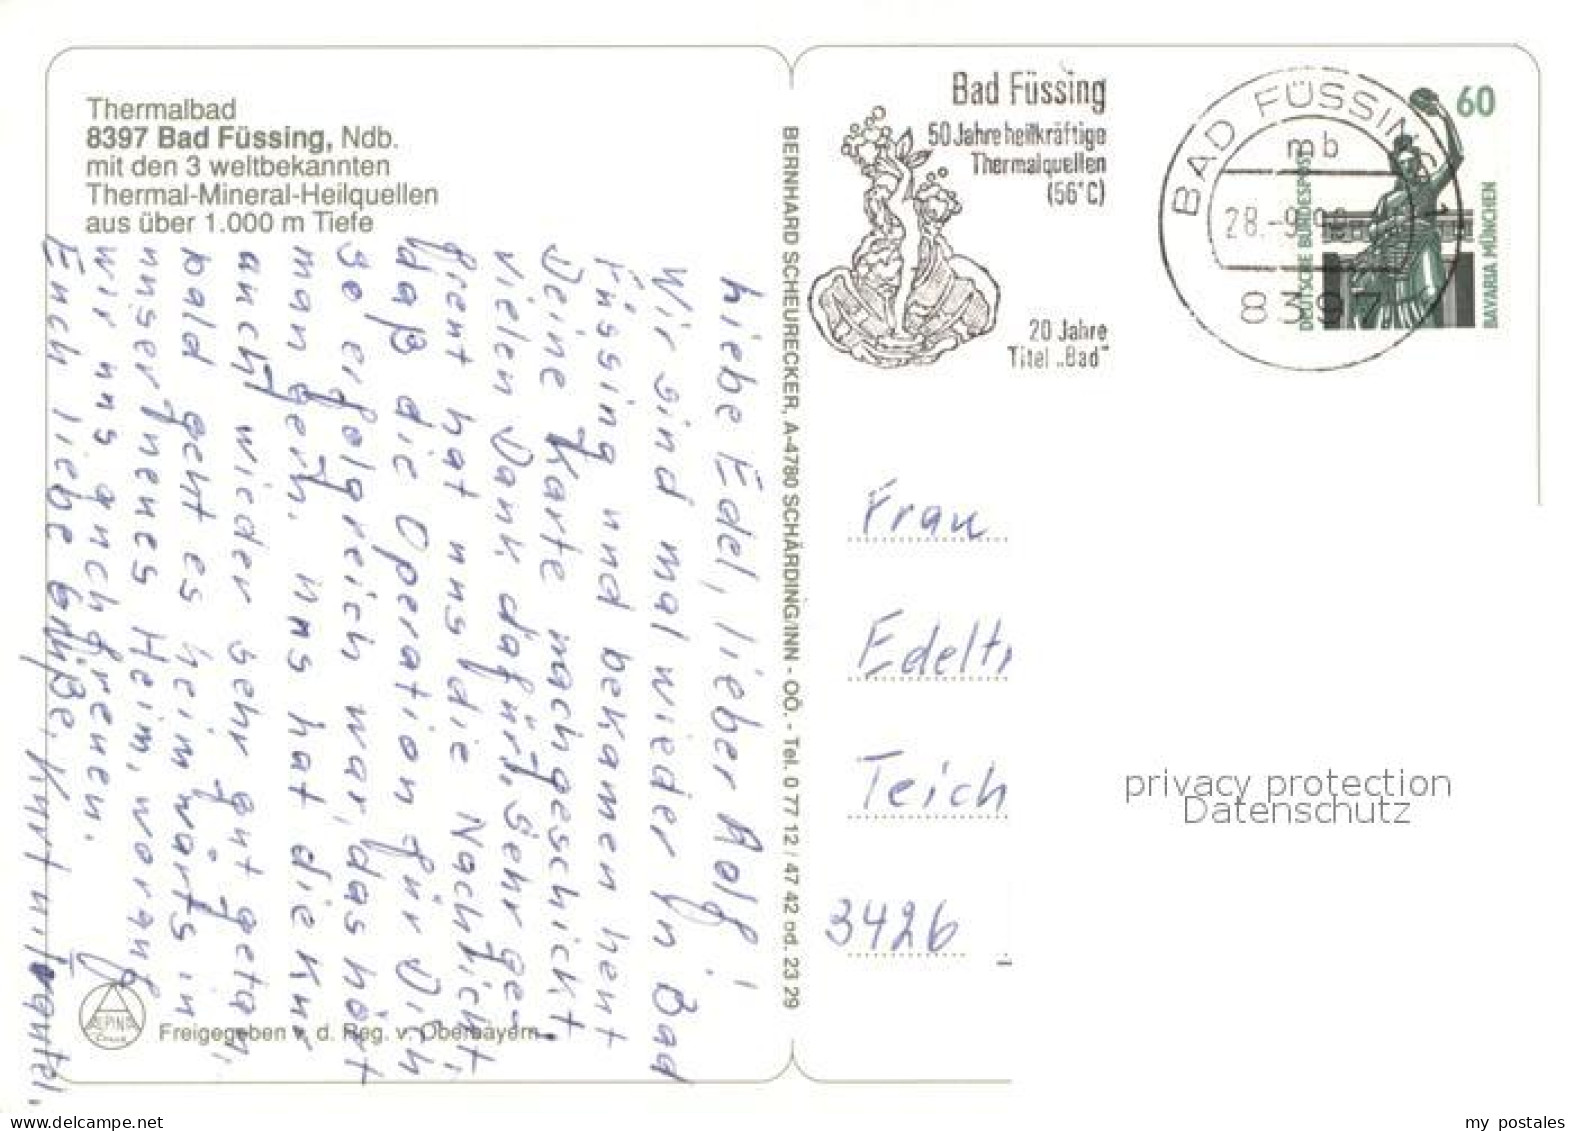 Thermalbad
8397 Bad Füssing, Ndb.
mit den 3 weltbekannten
Thermal-Mineral-Heilquellen
aus über 1.000 m Tiefe
Liebe Edel, lieber Rolf!
Wir sind mal wieder in Bad
Füssing und bekamen heut
Deine Karte nachgeschickt.
Vielen Dank dafür. Sehr ge-
freut hat uns die Nachricht,
daß die Operation für Dich
so erfolgreich war, das hört
man gern. Uns hat die Kur
auch wieder sehr gut getan,
bald geht es heimwärts in
unser neues Heim, worauf
wir uns auch freuen.
Euch liebe Grüße, Kurt u.
Freigegeben v. d. Reg. v. Oberbayern
BERNHARD SCHEURECKER, A-4780 SCHÄRDING/INN - OÖ. - Tel. 0 77 12 / 47 42 od. 23 29
Bad Füssing
50 Jahre heilkräftige
Thermalquellen
(56°C)
20 Jahre
Titel „Bad"
BAD FÜSSING 1
mb
28.-9.
8397
60
DEUTSCHE BUNDESPOST
BAVARIA MÜNCHEN
Frau
Edeltr
Teich
3426
privacy protection
Datenschutz
ALPINA
www.delcampe.net
my postales